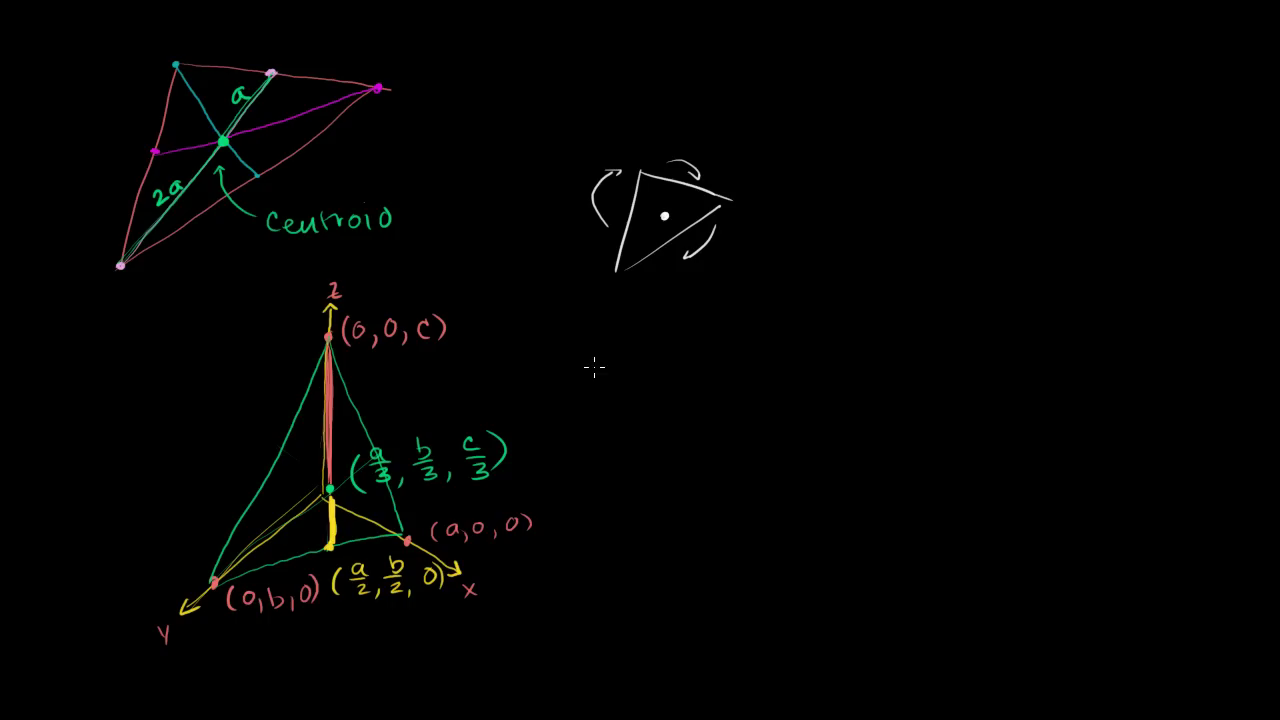 a
2a
Centroid
z
(0, 0, c)
(a/3, b/3, c/3)
(a, 0, 0)
(0, b, 0)
(a/2, b/2, 0)
x
y